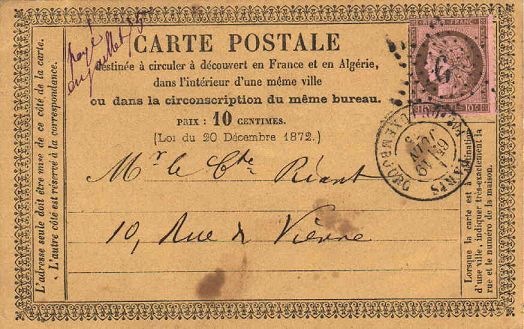 CARTE POSTALE
destinée à circuler à découvert en France et en Algérie,
dans l'intérieur d'une même ville
ou dans la circonscription du même bureau.
PRIX : 10 CENTIMES.
(Loi du 20 Décembre 1872.)
Mr le Cte Riant
10, Rue de Vienne
L'adresse seule doit être mise de ce côté de la carte.
L'autre côté est réservé à la correspondance.
Lorsque la carte est à
d'une ville, indiquer très-exactement la
rue et le numéro de la maison.
juillet
PARIS